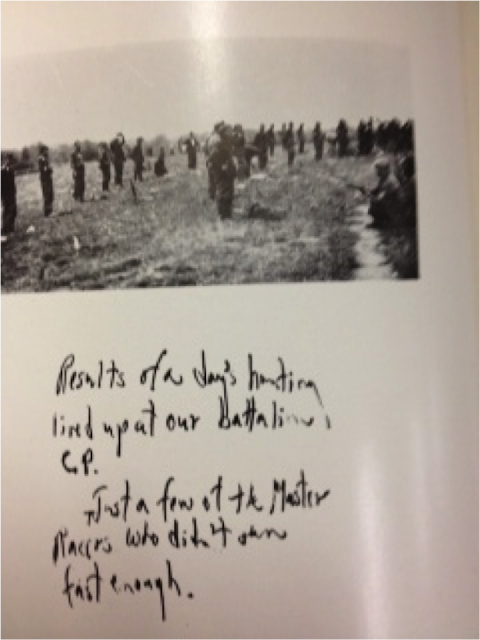 Results of a day's hunting
lined up at our battalion
C.P.
Just a few of the Master
Racers who didn't run
fast enough.